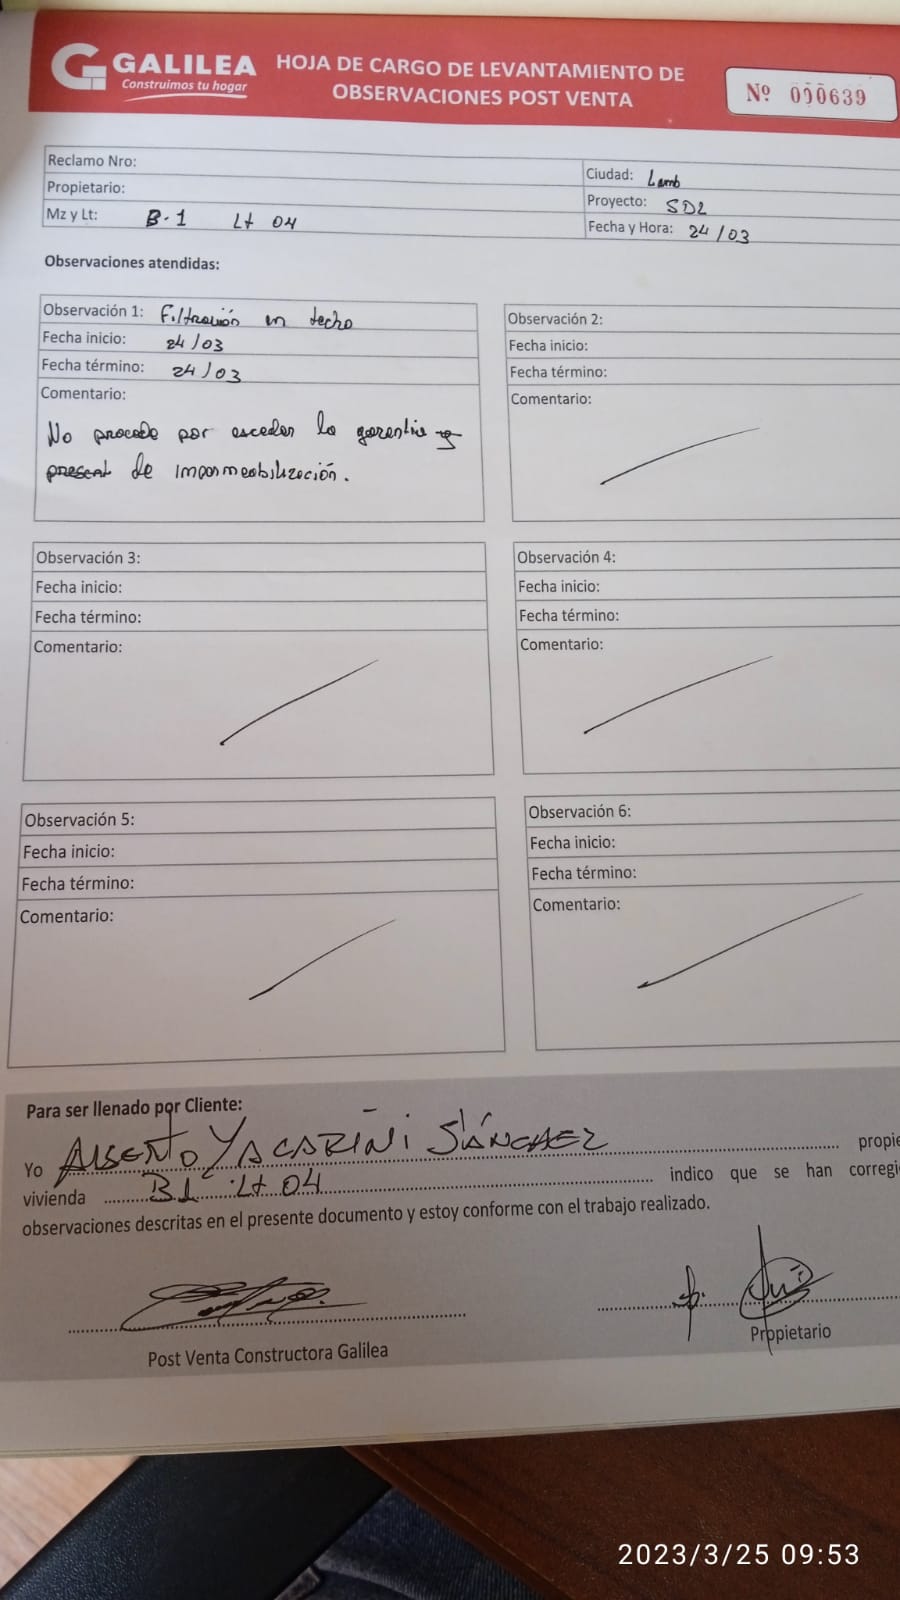 GALILEA
Construimos tu hogar
HOJA DE CARGO DE LEVANTAMIENTO DE
OBSERVACIONES POST VENTA
Nº 000639
Reclamo Nro:
Propietario:
Mz y Lt: B-1 Lt 04
Ciudad: Lamb
Proyecto: SDL
Fecha y Hora: 24/03
Observaciones atendidas:
Observación 1: Filtración en techo
Fecha inicio: 24/03
Fecha término: 24/03
Comentario:
No procede por esceder la garentia
de impermeabilización.
Observación 2:
Fecha inicio:
Fecha término:
Comentario:
Observación 3:
Fecha inicio:
Fecha término:
Comentario:
Observación 4:
Fecha inicio:
Fecha término:
Comentario:
Observación 5:
Fecha inicio:
Fecha término:
Comentario:
Observación 6:
Fecha inicio:
Fecha término:
Comentario:
Para ser llenado por Cliente:
Yo ALBERTO YACARINI SÁNCHEZ propie
vivienda B1 Lt 04 indico que se han corregi
observaciones descritas en el presente documento y estoy conforme con el trabajo realizado.
Post Venta Constructora Galilea
Propietario
2023/3/25 09:53